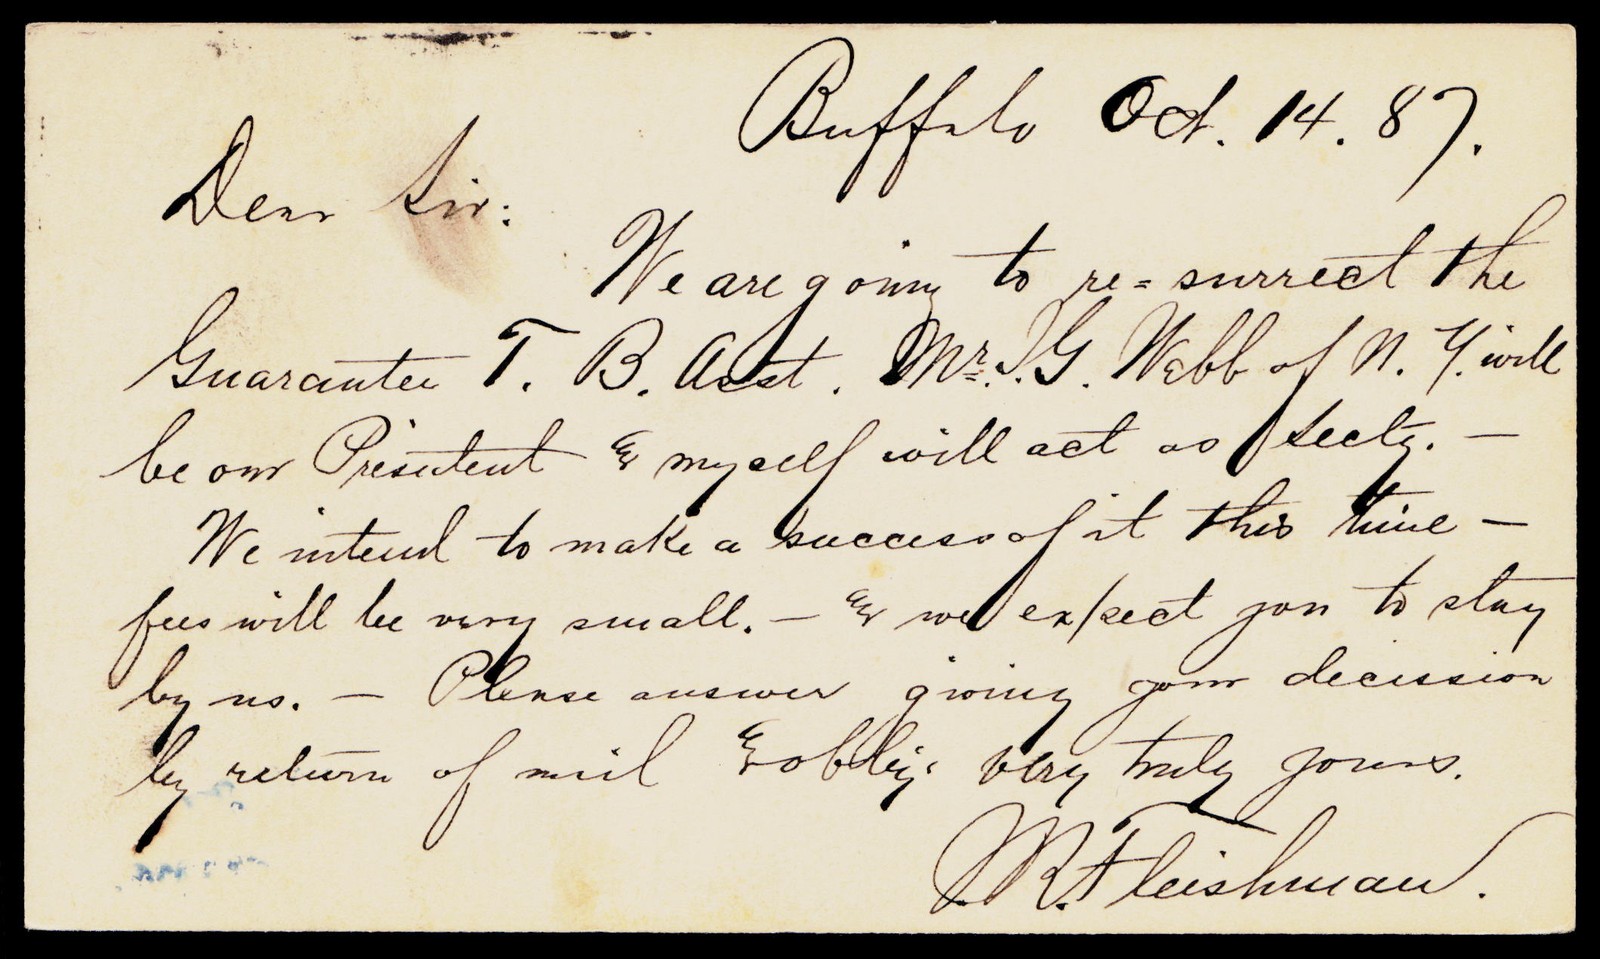 Buffalo Oct. 14. 87.
Dear Sir:
We are going to re=surrect the
Guarantee T. B. Asst. Mr. J. G. Webb of N. Y. will
be our President & myself will act as Secty. —
We intend to make a success of it this time —
fees will be very small. — & we expect you to stay
by us. — Please answer giving your decission
by return of mail & oblig: very truly yours.
M. R. Fleishman.